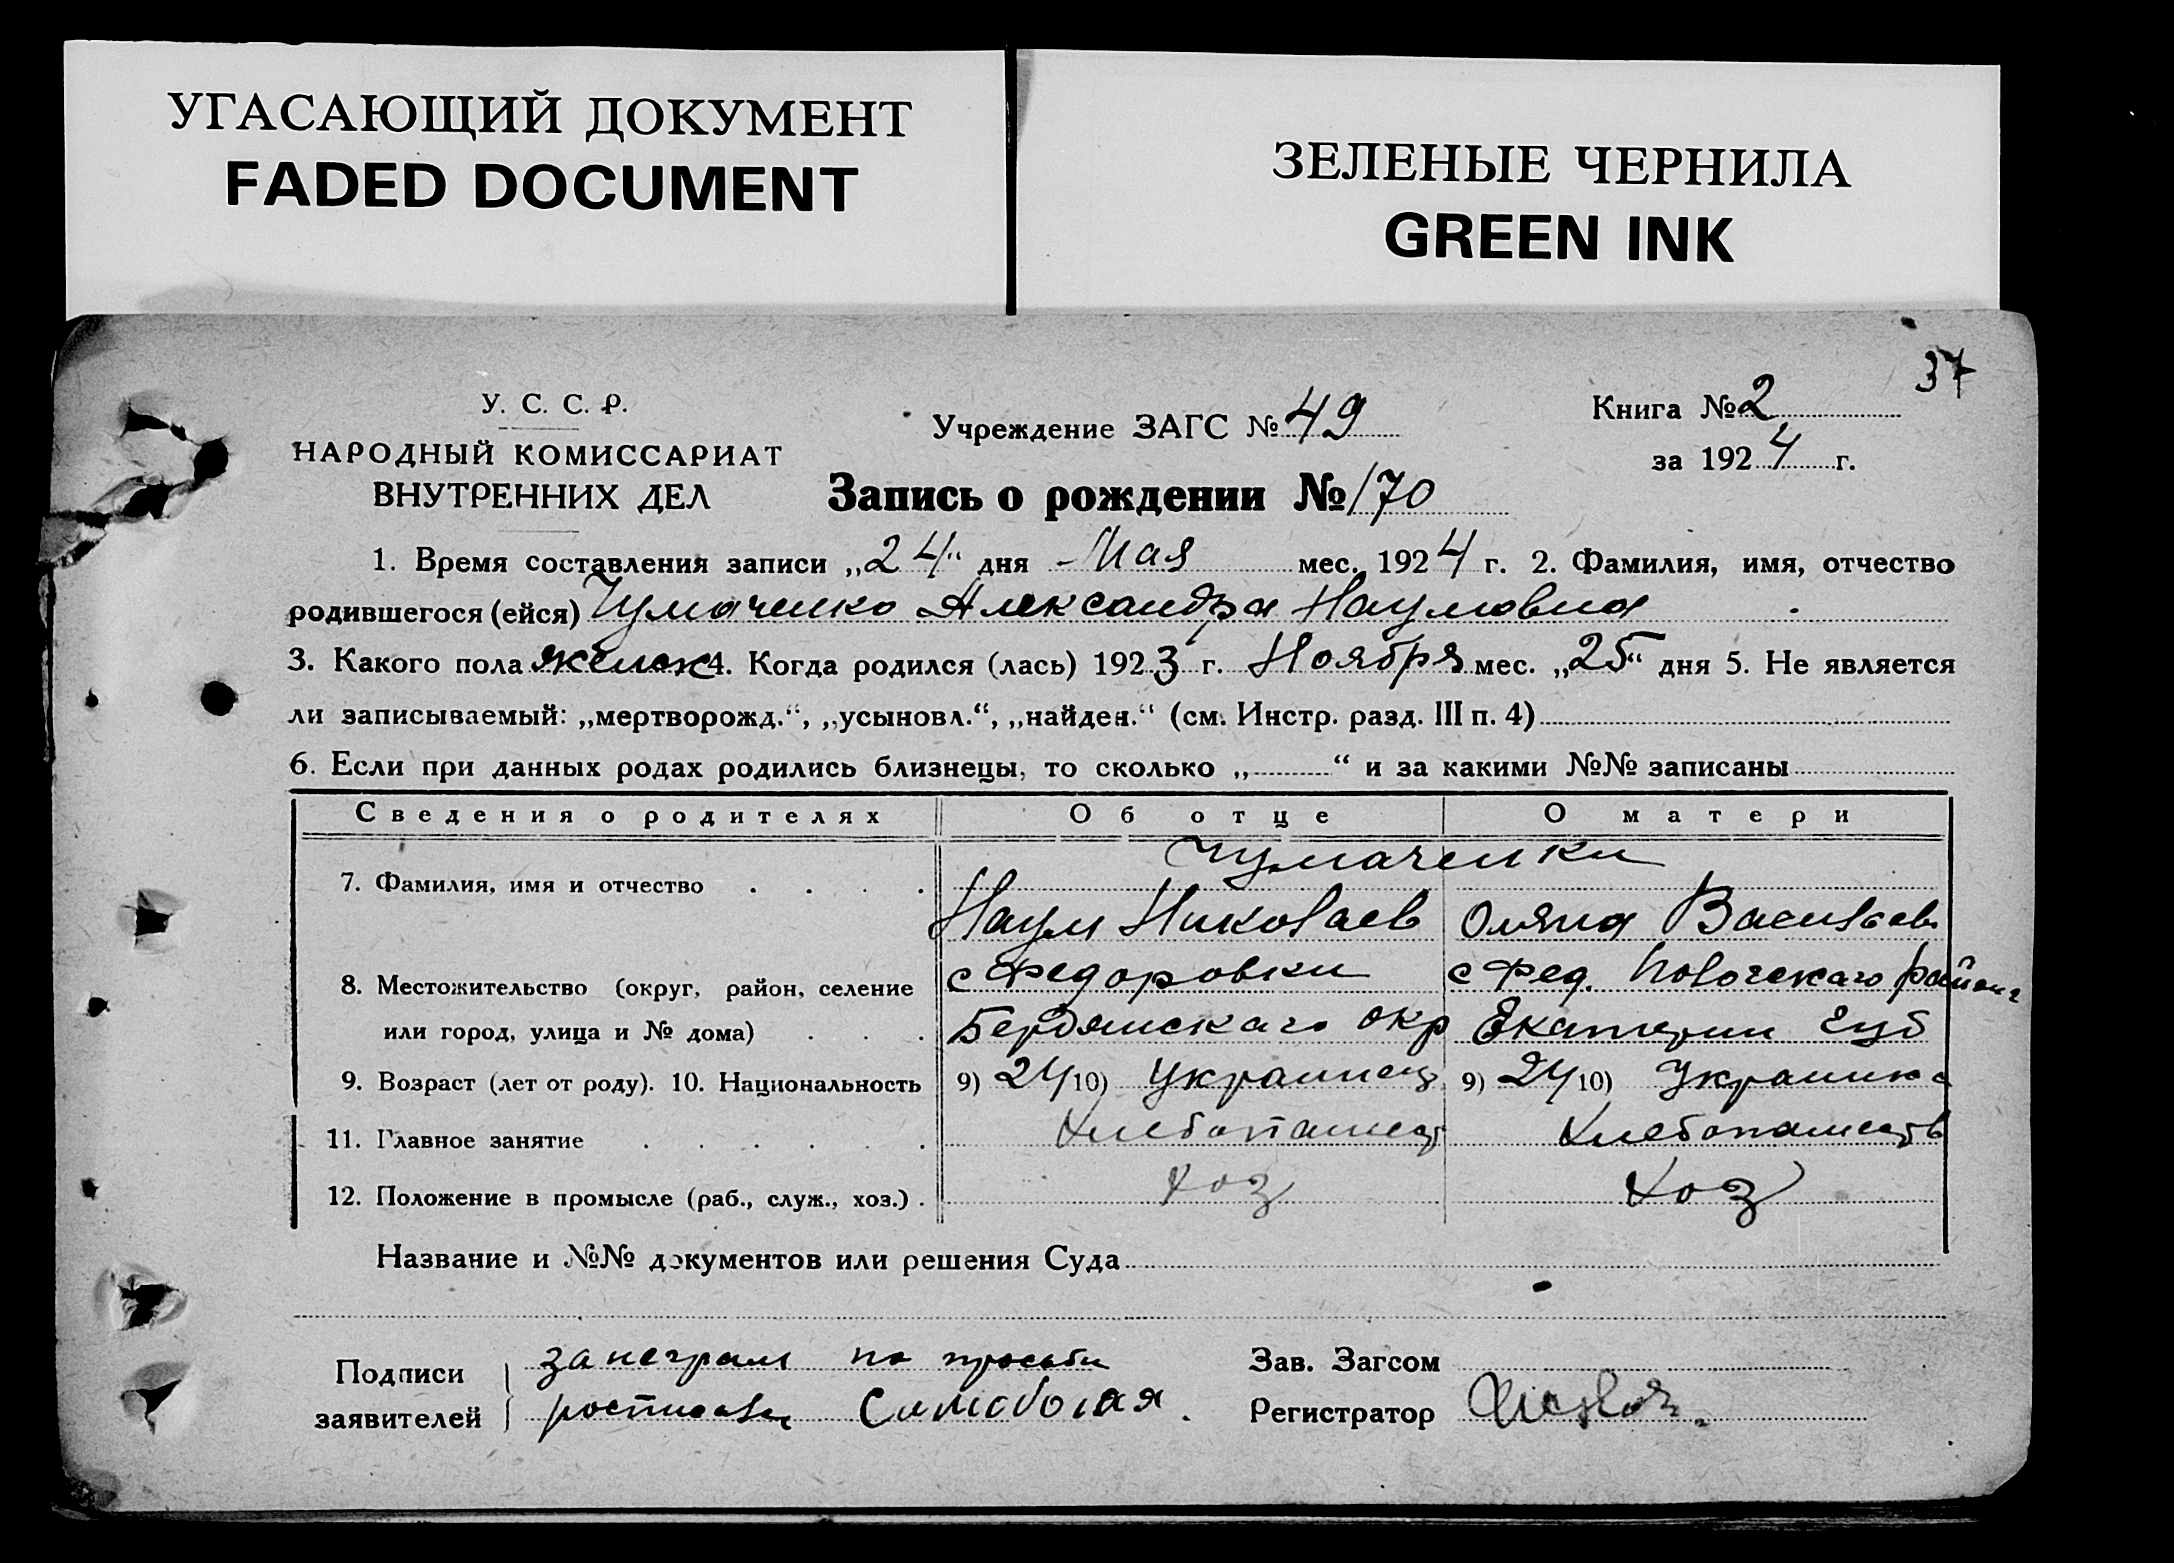 УГАСАЮЩИЙ ДОКУМЕНТ
FADED DOCUMENT
ЗЕЛЕНЫЕ ЧЕРНИЛА
GREEN INK
37
У. С. С. Р.
НАРОДНЫЙ КОМИССАРИАТ
ВНУТРЕННИХ ДЕЛ
Учреждение ЗАГС № 49
Книга № 2
за 1924 г.
Запись о рождении № 170
1. Время составления записи „24“ дня Мая мес. 1924 г. 2. Фамилия, имя, отчество
родившегося (ейся) Чумаченко Александра Наумовна
3. Какого пола женск 4. Когда родился (лась) 1923 г. Ноября мес. „25“ дня 5. Не является
ли записываемый: „мертворожд.“, „усыновл.“, „найден.“ (см. Инстр. разд. III п. 4)
6. Если при данных родах родились близнецы, то сколько „ “ и за какими №№ записаны
Сведения о родителях Об отце О матери
Чумаченки
7. Фамилия, имя и отчество
Наум Николаев Оляна Васильев
8. Местожительство (округ, район, селение с Федоровки с Фед. района
или город, улица и № дома) Бердянскаго окр Екатерин губ
9. Возраст (лет от роду). 10. Национальность 9) 24 10) Украинец 9) 24 10) Украинка
11. Главное занятие Хлебопашец Хлебопашеств
12. Положение в промысле (раб., служ., хоз.) Хоз Хоз
Название и №№ документов или решения Суда
Подписи
заявителей
по просьби
Зав. Загсом
Регистратор